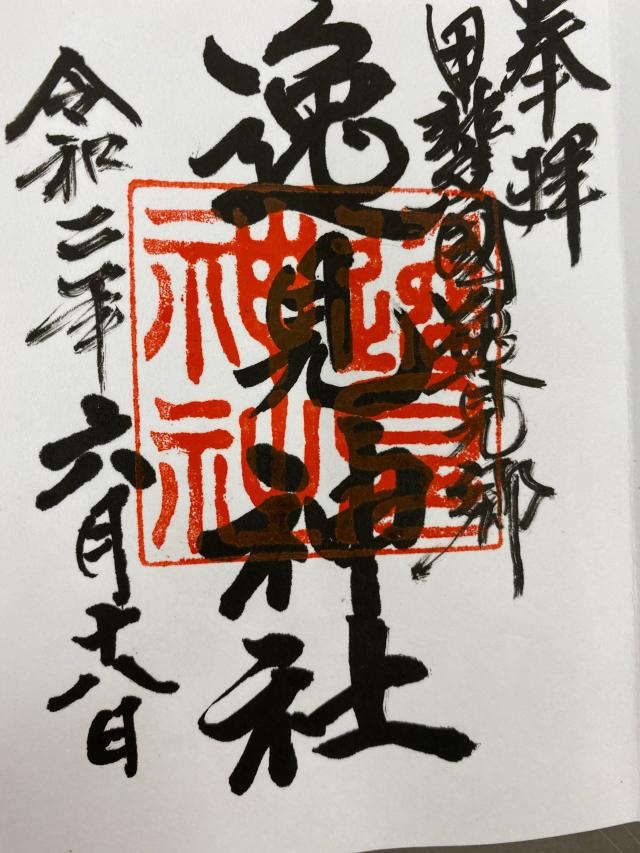 奉拝
甲斐國逸見郷
逸見神社
令和二年六月十八日
逸見神社